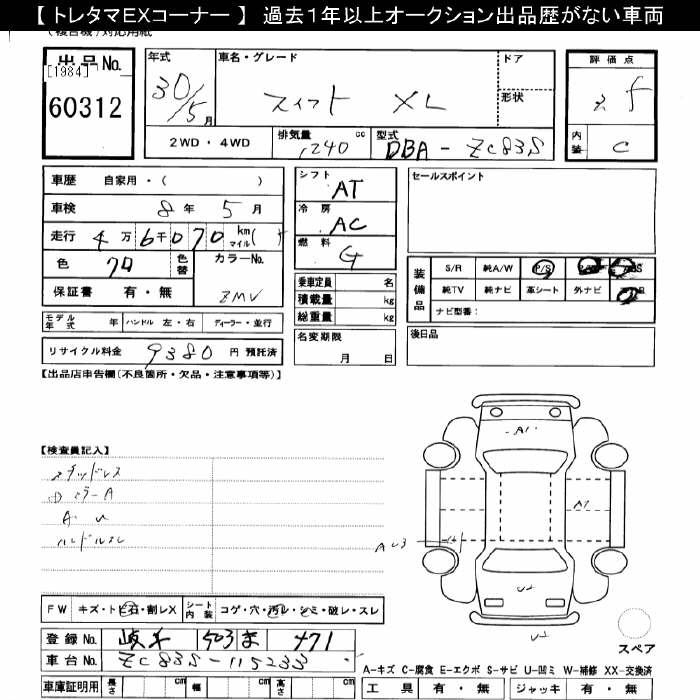 【 トレタマEXコーナー 】 過去1年以上オークション出品歴がない車両
出品No.
[1984]
60312
年式
30/5月
車名・グレード
スイフト XL
ドア
形状
評価点
内装
C
2WD・4WD
排気量
1240
cc
型式
DBA-ZC83S
車歴 自家用・( )
車検 8年 5月
走行 4万6千070 km マイル( )
色 クロ
色替
カラーNo.
ZMV
保証書 有・無
シフト
AT
冷房
AC
燃料
G
セールスポイント
乗車定員 名
積載量 kg
総重量 kg
装備品
S/R 純A/W P/S
純TV 純ナビ 革シート 外ナビ
ナビ型番:
モデル年式 年 ハンドル 左・右 ディーラー・並行
リサイクル料金 9380 円 預託済
名変期限
月 日
後日品
【出品店申告欄(不良箇所・欠品・注意事項等)】
【検査員記入】
ミラーA
ハンドルスレ
A1
FW キズ・トビ石・割レX
シート内装 コゲ・穴・汚レ・シミ・破レ・スレ
登録No. 岐阜 503 ま 471
車台No. ZC83S-115233
スペア
A-キズ C-腐食 E-エクボ S-サビ U-凹ミ W-補修 XX-交換済
車庫証明用 長さ cm 幅 cm 高さ cm
工具 有・無 ジャッキ 有・無